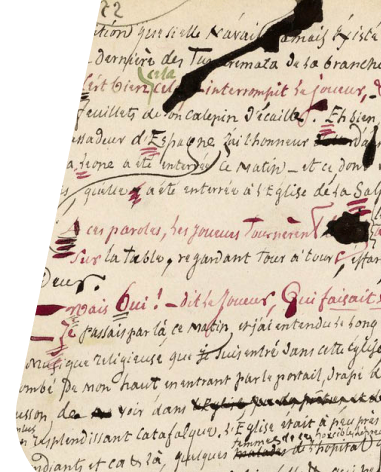 72
tion) que si elle n'avait jamais existé
dernière des Turremata de sa branche
cela
C'est bien cela, — interrompit le joueur,
feuillets de son calepin d'écaille. Eh bien
ssadeur d'Espagne, j'ai l'honneur
a jeone a été enterrée ce matin — et ce dont
s, qu'elle a été enterrée à l'Eglise de la Sal
A ces paroles, les joueurs tournèrent
sur la table, regardant tour à tour, effar
Deur.
— mais Oui ! — dit le joueur, Qui faisait
Je passais par là ce matin, et j'ai entendu le long
musique religieuse que je suis entré dans cette église
ombé De mon haut en entrant par le portail, drapé d
usson de voir dans
resplendissant catafalque. L'Eglise était à peu près
femmes de ces horribles
ndiants et çà et là, quelques malades de l'hôpital